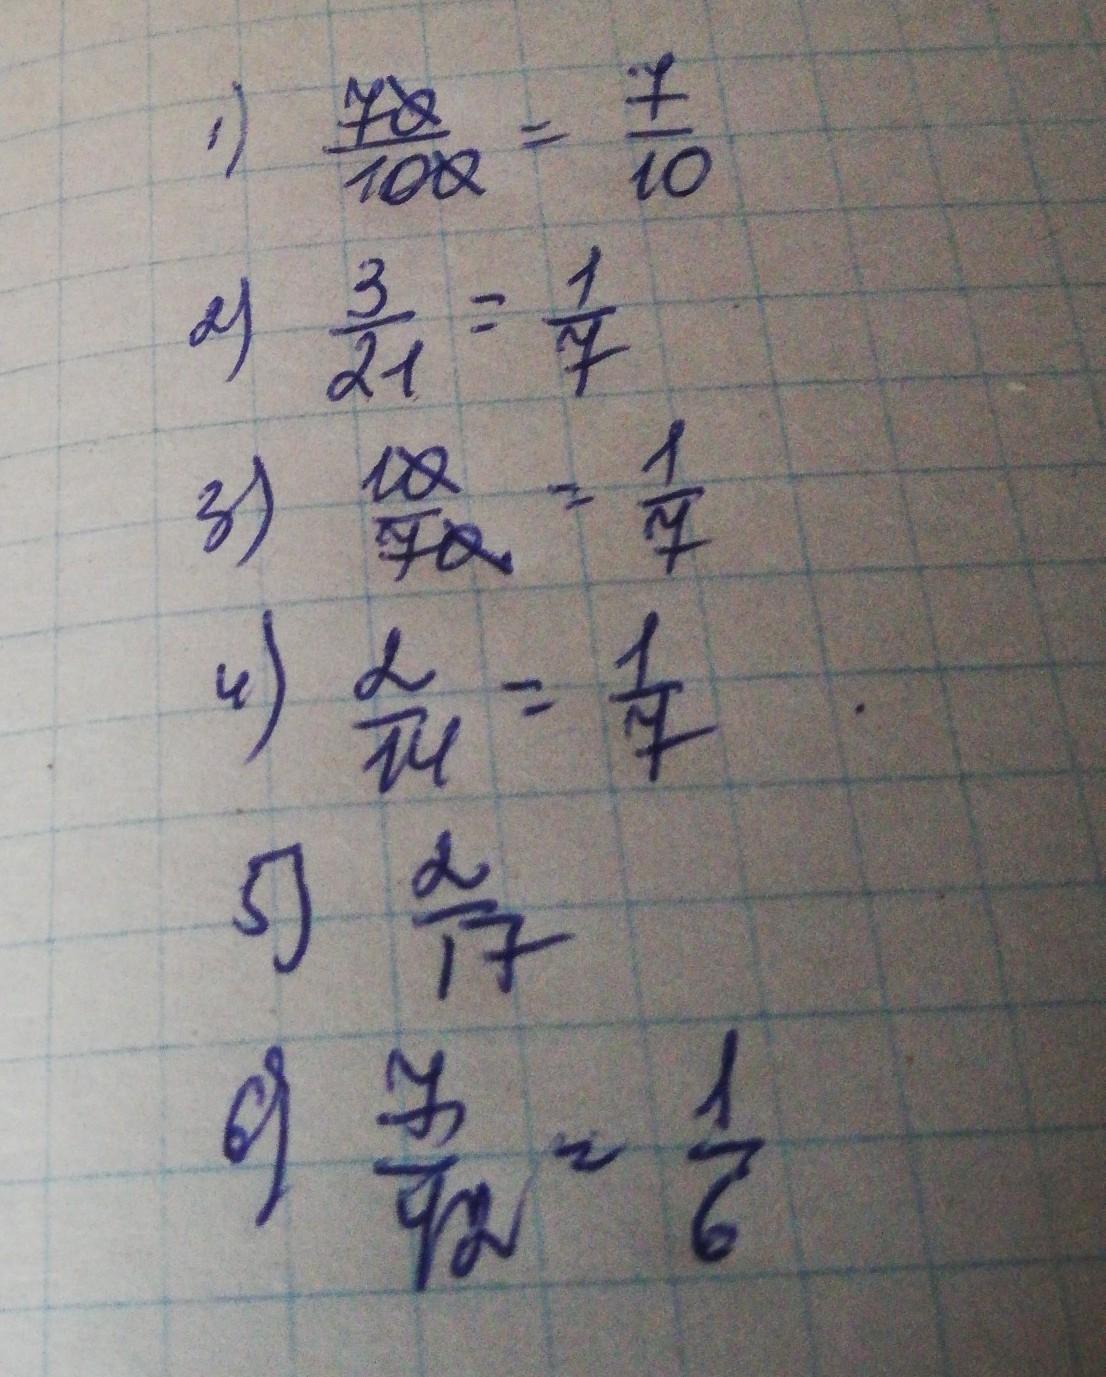 1) 70/100 = 7/10
2) 3/21 = 1/7
3) 10/70 = 1/7
4) 2/14 = 1/7
5) 2/17
6) 7/42 = 1/6